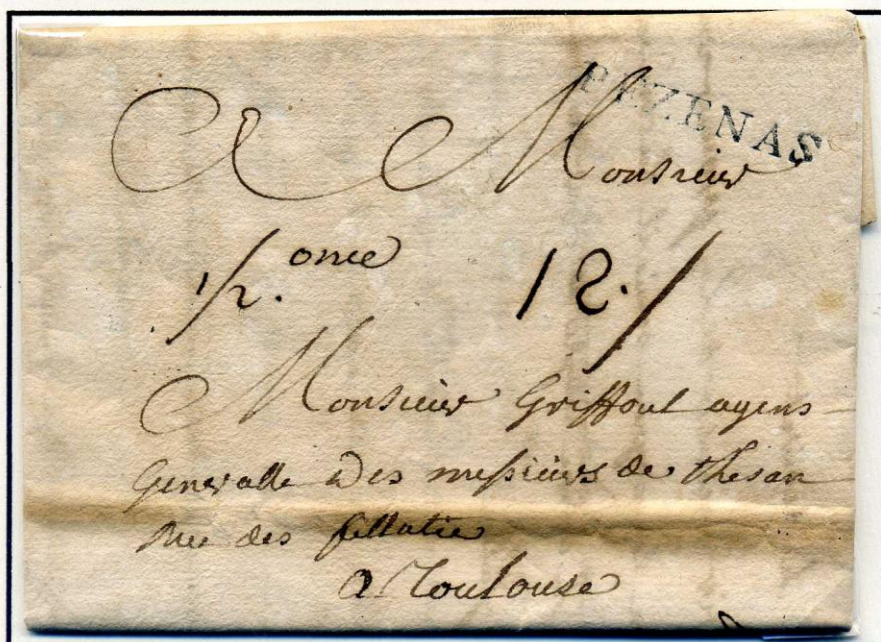 PEZENAS
A Monsieur
1/2. once 12.
Monsieur Griffoul agens
generalle des messieurs de thesan
Rue des filatie
a Toulouse